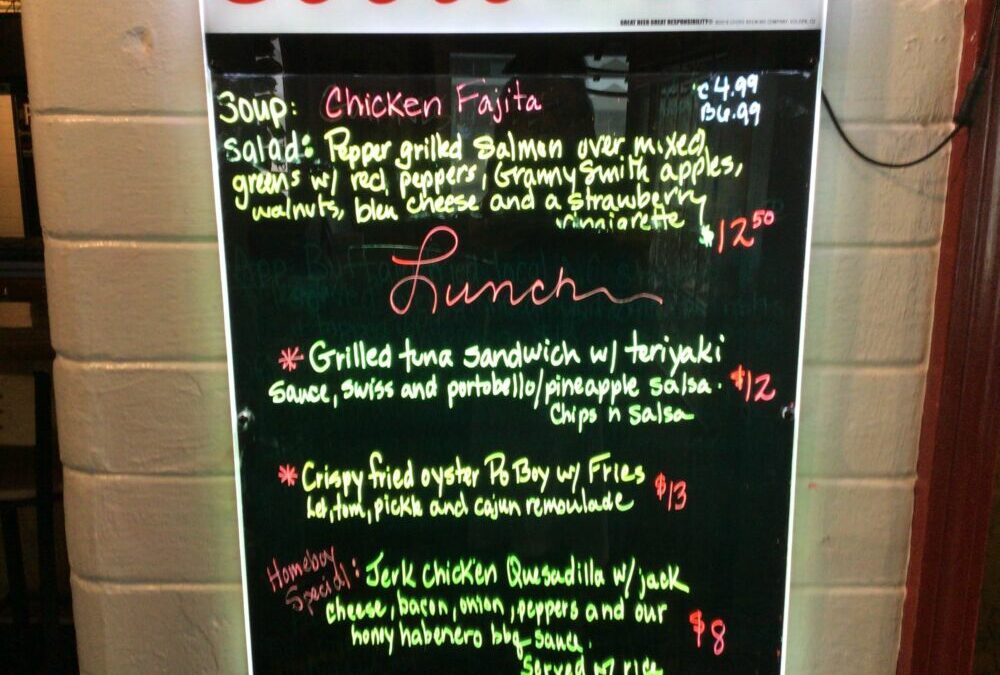 GREAT BEER GREAT RESPONSIBILITY®
Soup: Chicken Fajita C 4.99
B 6.99
Salad: Pepper grilled Salmon over mixed
greens w/ red peppers, Granny Smith apples,
walnuts, bleu cheese and a strawberry
vinniarette $12 50
Lunch
* Grilled tuna sandwich w/ teriyaki
sauce, swiss and portobello/pineapple salsa. $12
Chips n Salsa
* Crispy fried oyster Po Boy w/ Fries
let, tom, pickle and cajun remoulade $13
Homeboy
Special: Jerk Chicken Quesadilla w/ jack
cheese, bacon, onion, peppers and our
honey habenero bbq sauce. $8
Served w/ rice